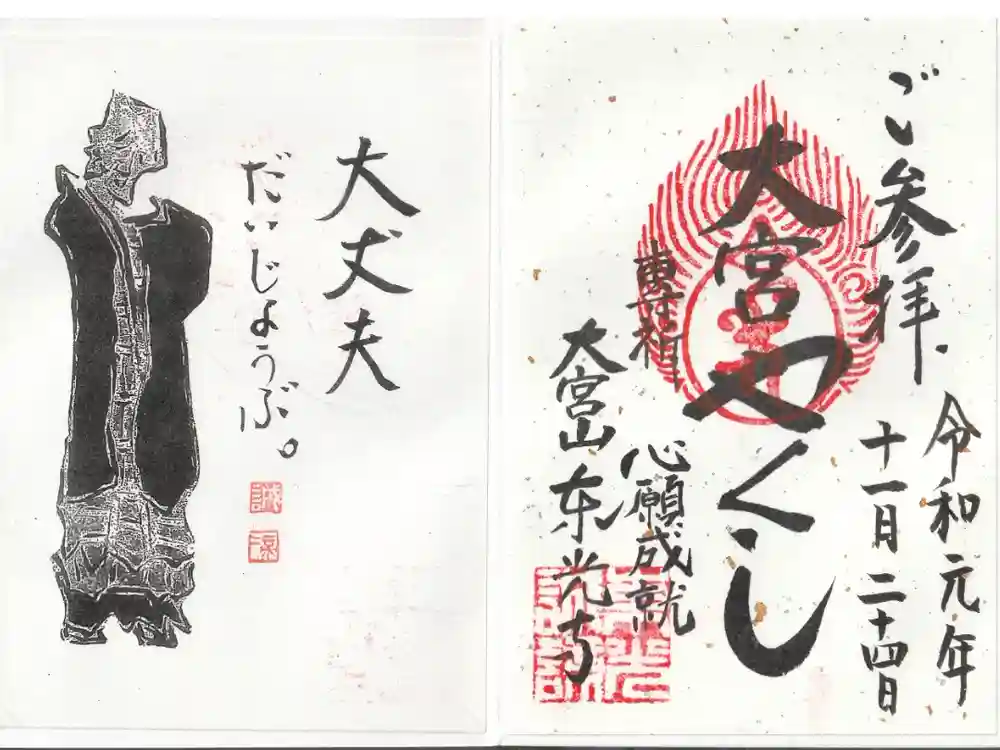 ご参拝
令和元年
十一月二十四日
大宮やくし
心願成就
大宮山东光寺
大丈夫
だいじょうぶ。
誠